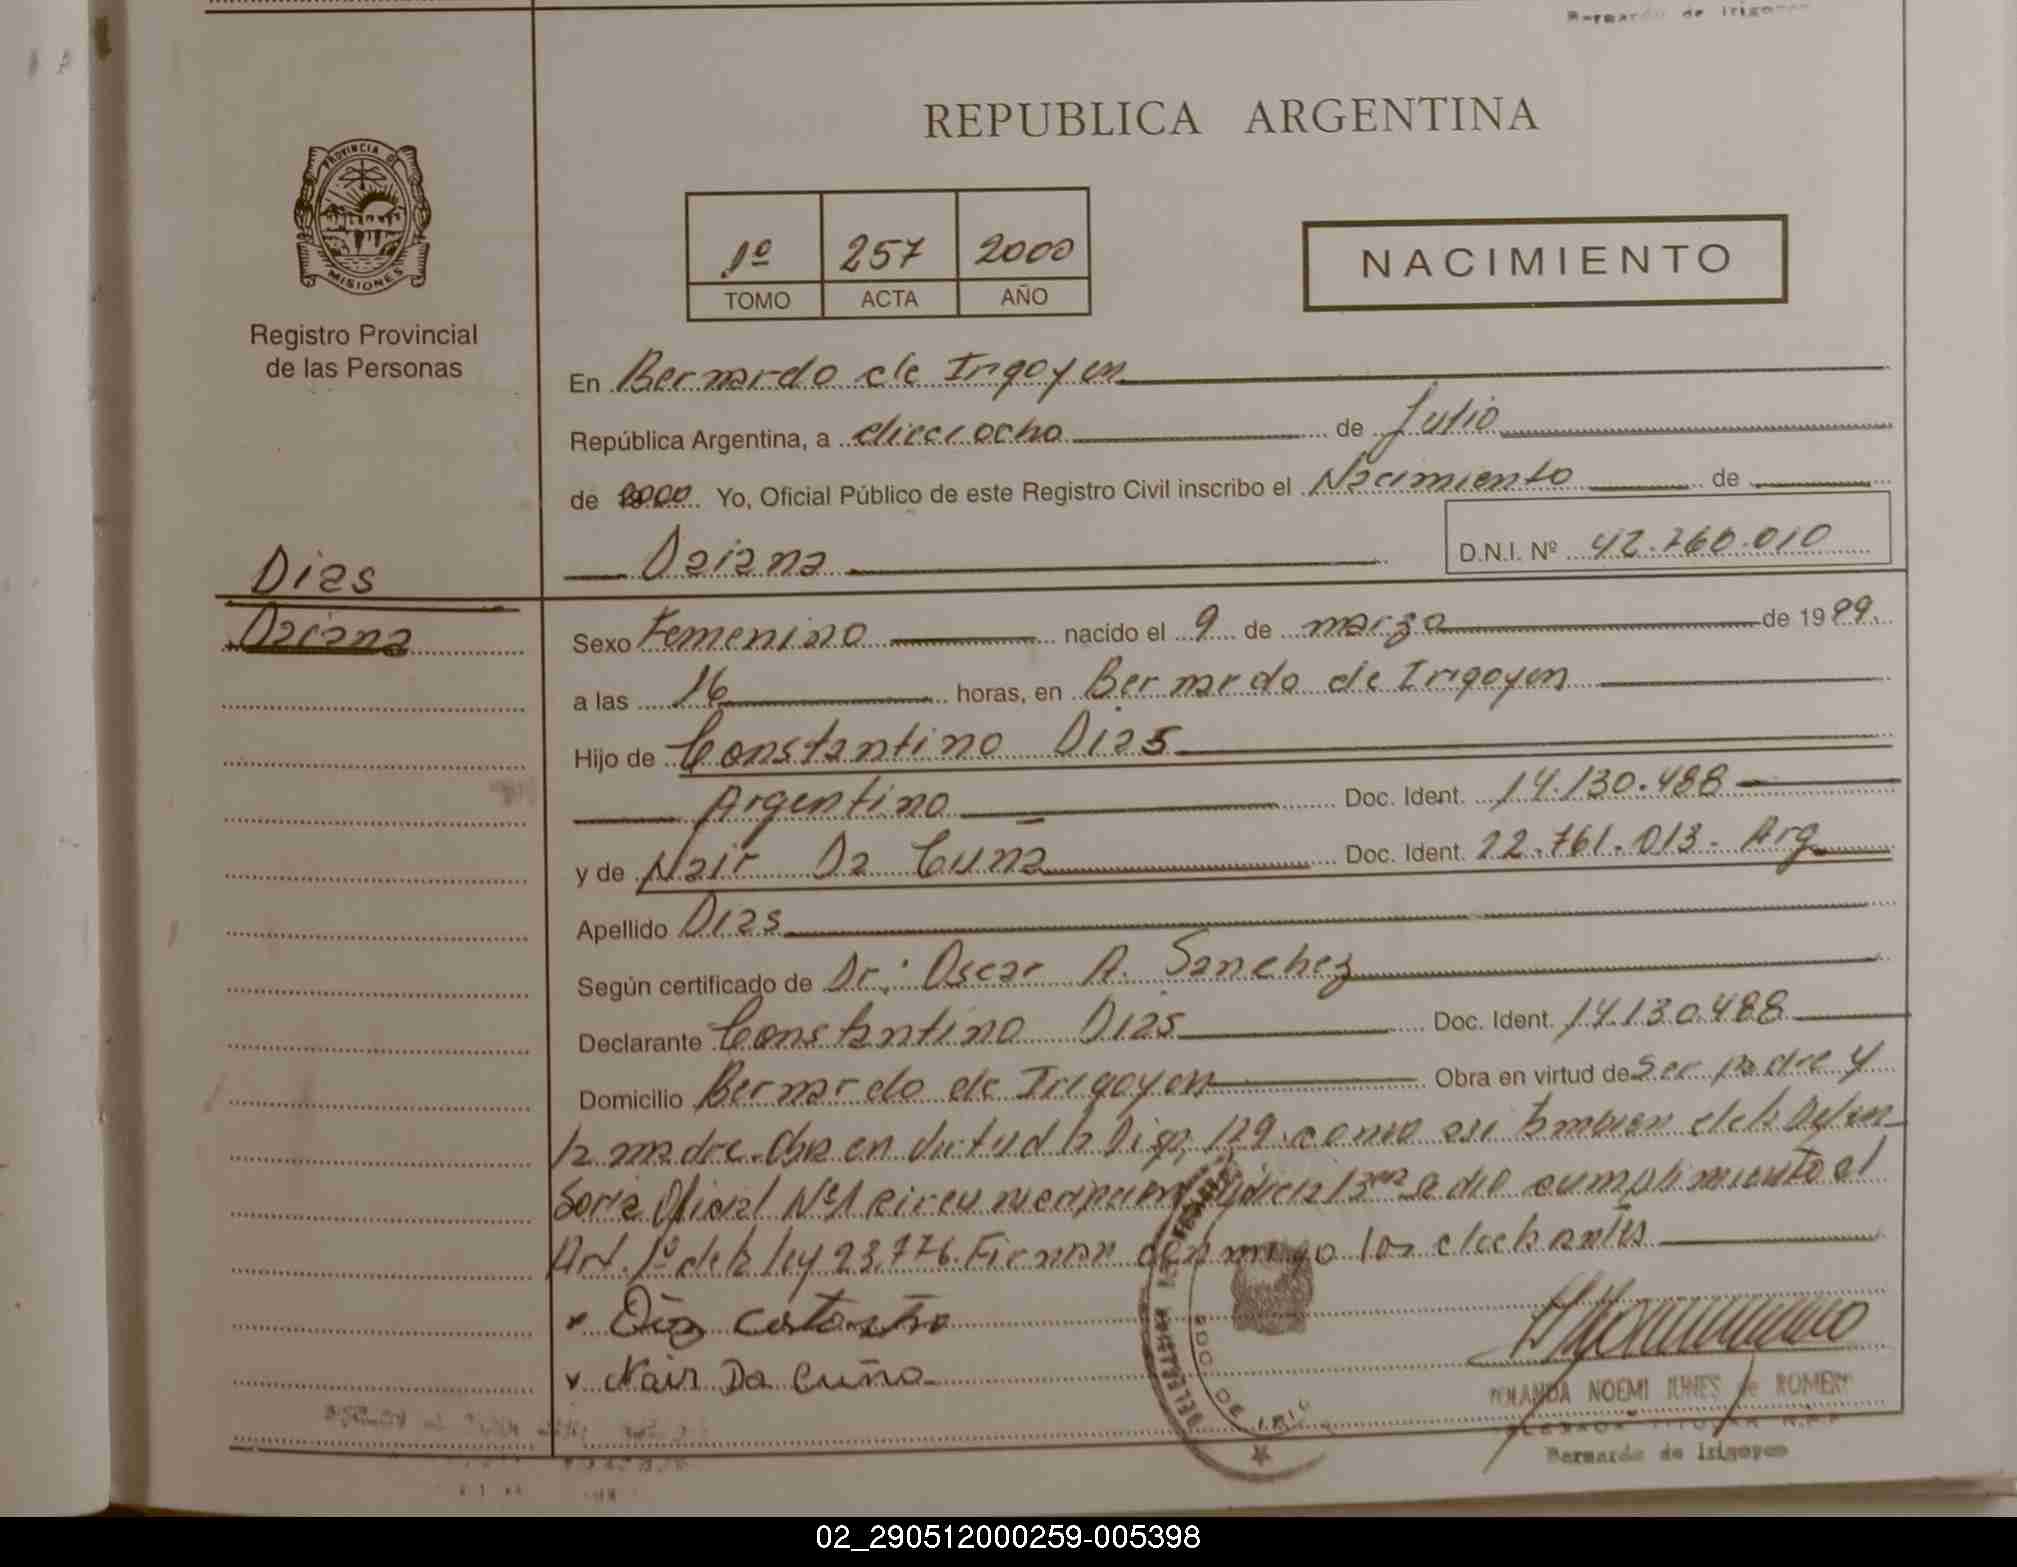 Bernardo de Irigoyen
REPUBLICA ARGENTINA
PROVINCIA DE
MISIONES
Registro Provincial
de las Personas
1º 257 2000
TOMO ACTA AÑO
NACIMIENTO
En Bernardo de Irigoyen
República Argentina, a dieciocho de Julio
de 2000 Yo, Oficial Público de este Registro Civil inscribo el Nacimiento de
Daiana D.N.I. Nº 42.760.010
Dias
Daiana
Sexo Femenino nacido el 9 de marzo de 1999.
a las 16 horas, en Bernardo de Irigoyen
Hijo de Constantino Dias
Argentino Doc. Ident. 14.130.488
y de Nair Da Cuna Doc. Ident. 22.761.013 - Arg
Apellido Dias
Según certificado de Dr: Oscar A. Sanchez
Declarante Constantino Dias Doc. Ident. 14.130.488
Domicilio Bernardo de Irigoyen Obra en virtud de Ser padre y
la madre. Obra en virtud la Disp. 129 como asi tambien de la Defen-
soria Oficial Nº1 a dio cumplimiento al
Art. 1º de la ley 23.776. Firman conmigo los declarantes
Nair Da Cuña
YOLANDA NOEMI JUNES de ROMERO
TITULAR R.P.P
Bernardo de Irigoyen
02_290512000259-005398